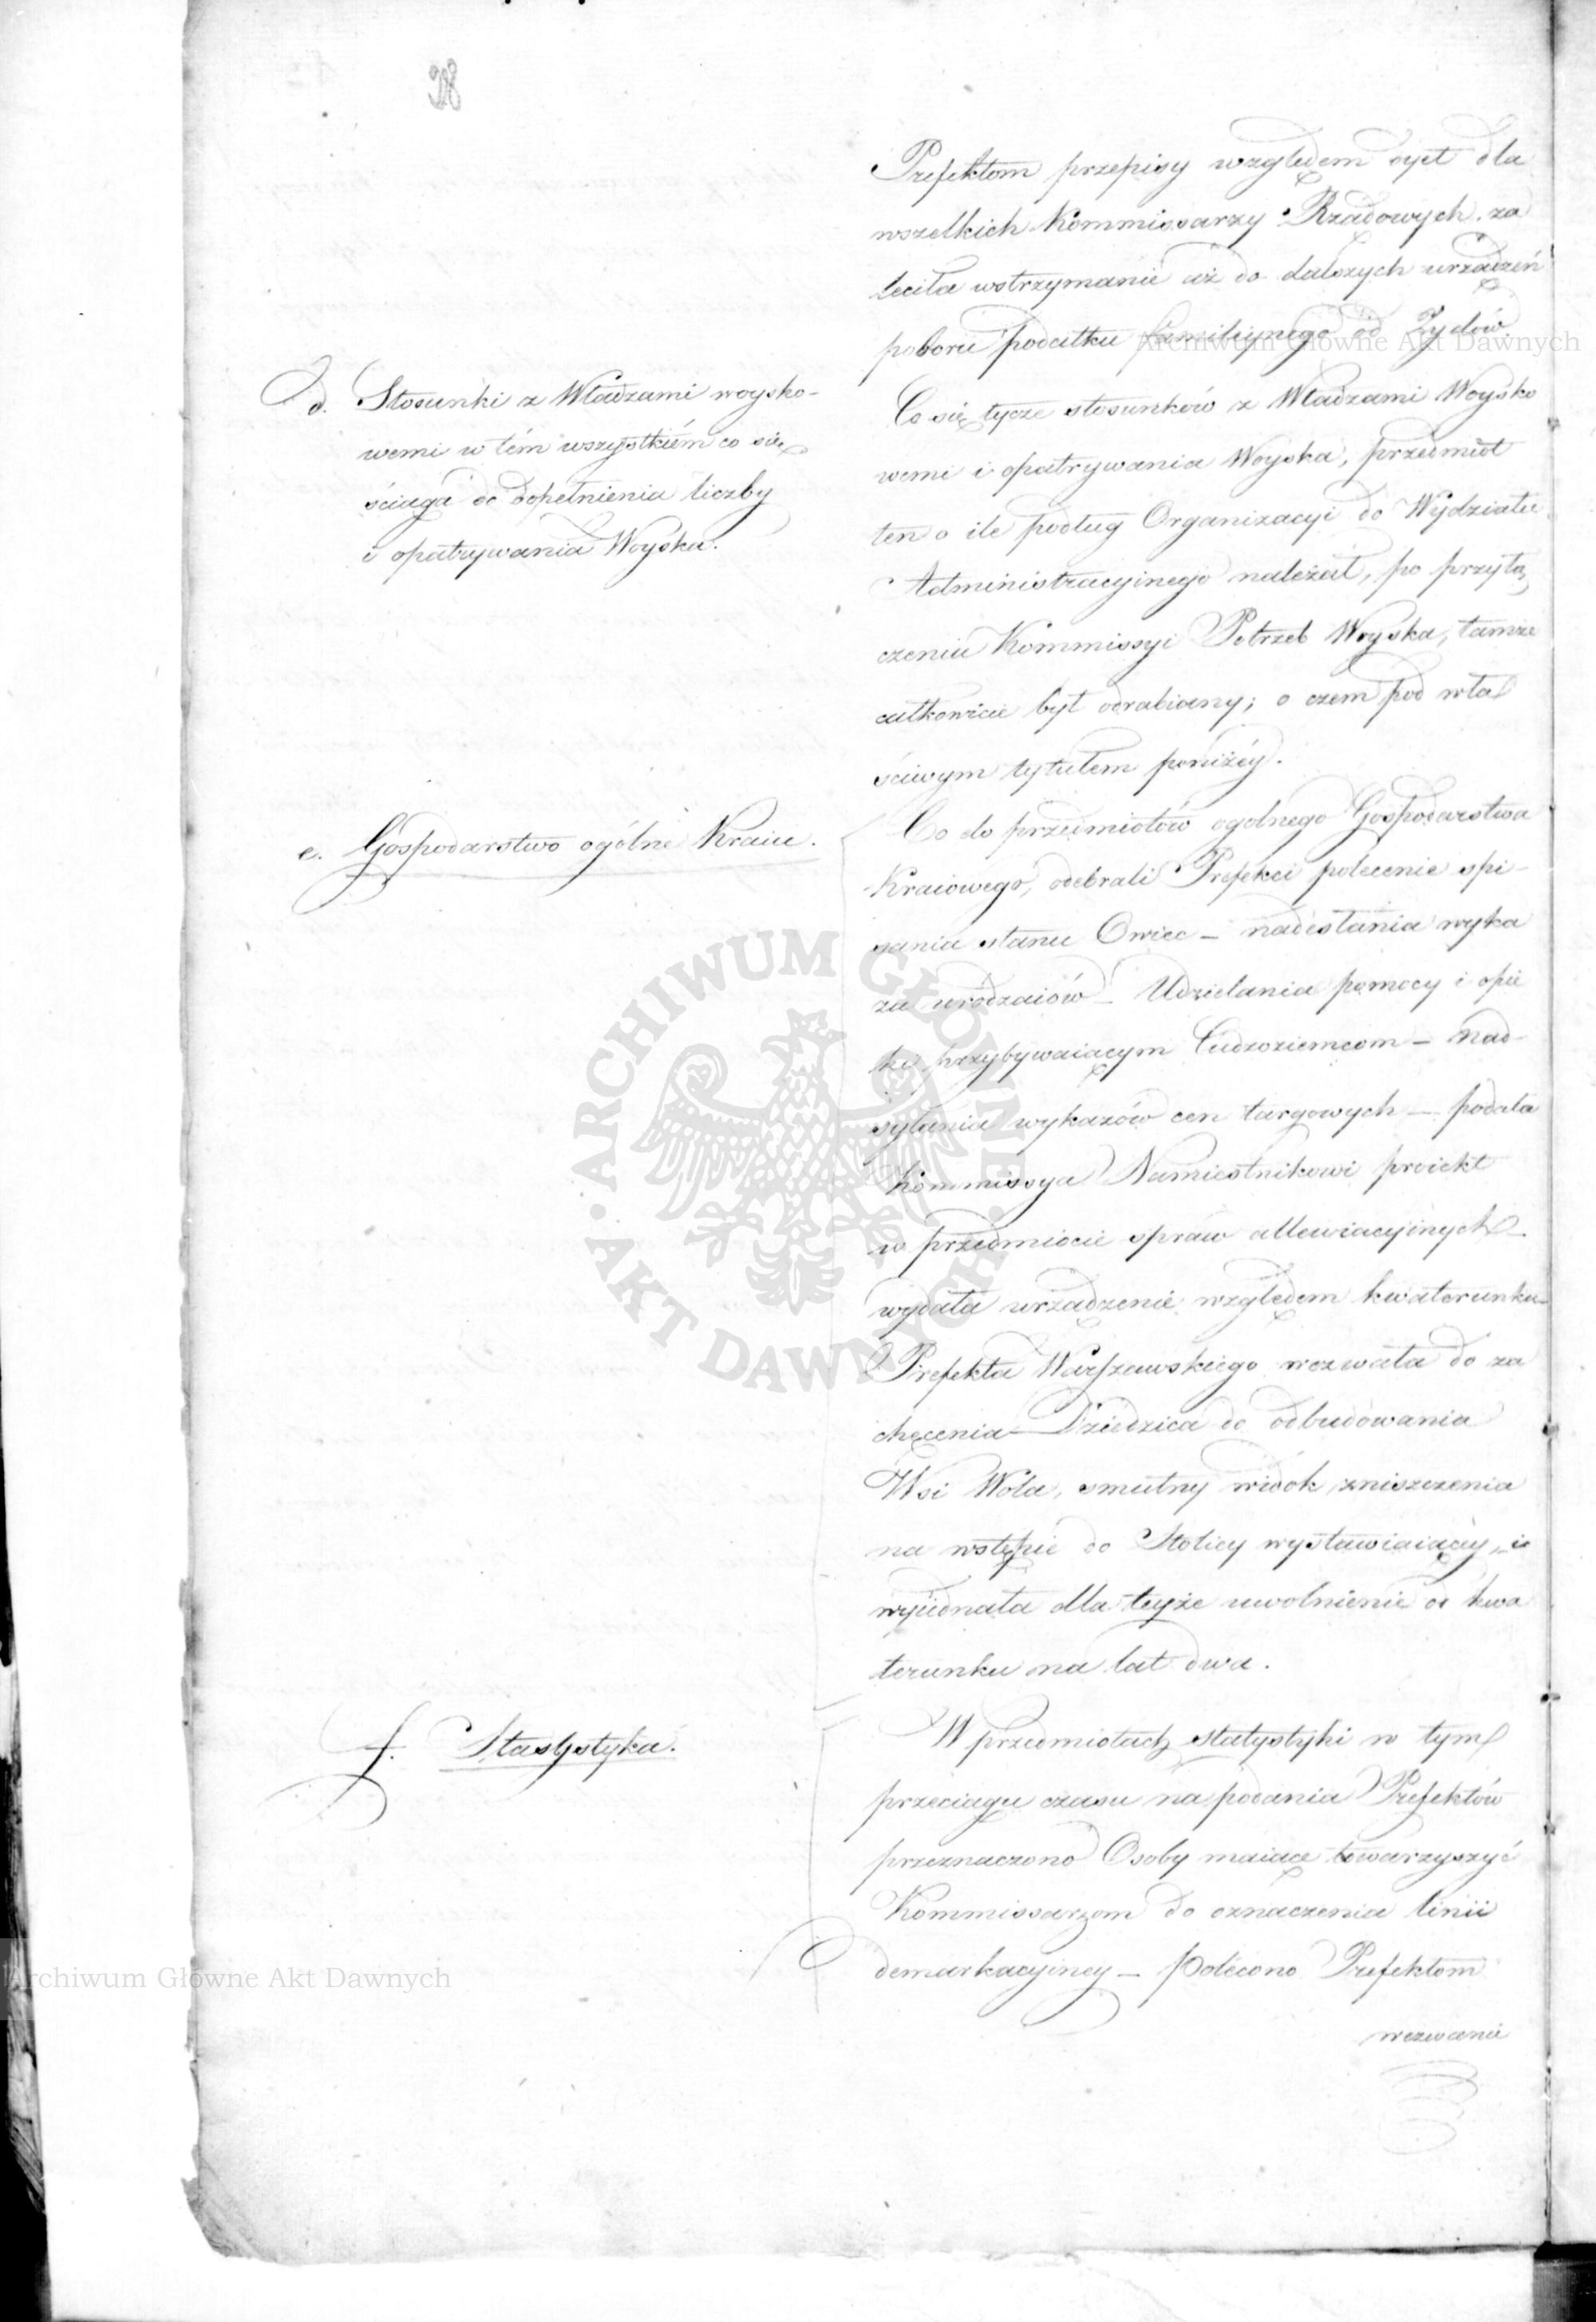 98
Prefektom przepisy względem dyet dla
wszelkich Kommissarzy Rządowych. za
leciła wstrzymanie aż do dalszych urządzeń
poboru podatku familiynego od Żydów.
d. Stosunki z Władzami woysko-
wemi w tém wszystkiém co się
ściąga do dopełnienia liczby
i opatrywania Woyska.
Co się tycze stosunków z Władzami Woysko
wemi i opatrywania Woyska, przedmiot
ten o ile podług Organizacyi do Wydziału
Administracyinego należał, po przyłą
czeniu Kommissyi Potrzeb Woyska, tamże
całkowicie był odrabiany; o czem pod wła
ściwym tytułem poniżéy.
e. Gospodarstwo ogólne Kraiu.
Co do przedmiotów ogolnego Gospodarstwa
Kraiowego, odebrali Prefekci polecenie spi-
sania stanu Owiec – nadesłania wyka
zu urodzaiów – Udzielania pomocy i opie
ki przybywaiącym Cudzoziemcom – nad-
syłania wykazów cen targowych – podała
Kommissya Namiestnikowi proiekt
w przedmiocie spraw allewiacyinych –
wydała urządzenie względem kwaterunku –
Prefekta Warszawskiego wezwała do za
chęcenia Dziedzica do odbudowania
Wsi Wola, smutny widok zniszczenia
na wstępie do Stolicy wystawiaiącéy, i
wyiednała dla teyże uwolnienie od kwa
terunku na lat dwa.
f. Stastystyka.
W przedmiotach statystyki w tym
przeciągu czasu na podania Prefektów
przeznaczono Osoby maiące towarzyszyć
Kommissarzom do oznaczenia linii
demarkacyiney – Polecono Prefektom
wezwanie
Archiwum Główne Akt Dawnych
ARCHIWUM GŁÓWNE · AKT DAWNYCH ·
Archiwum Główne Akt Dawnych